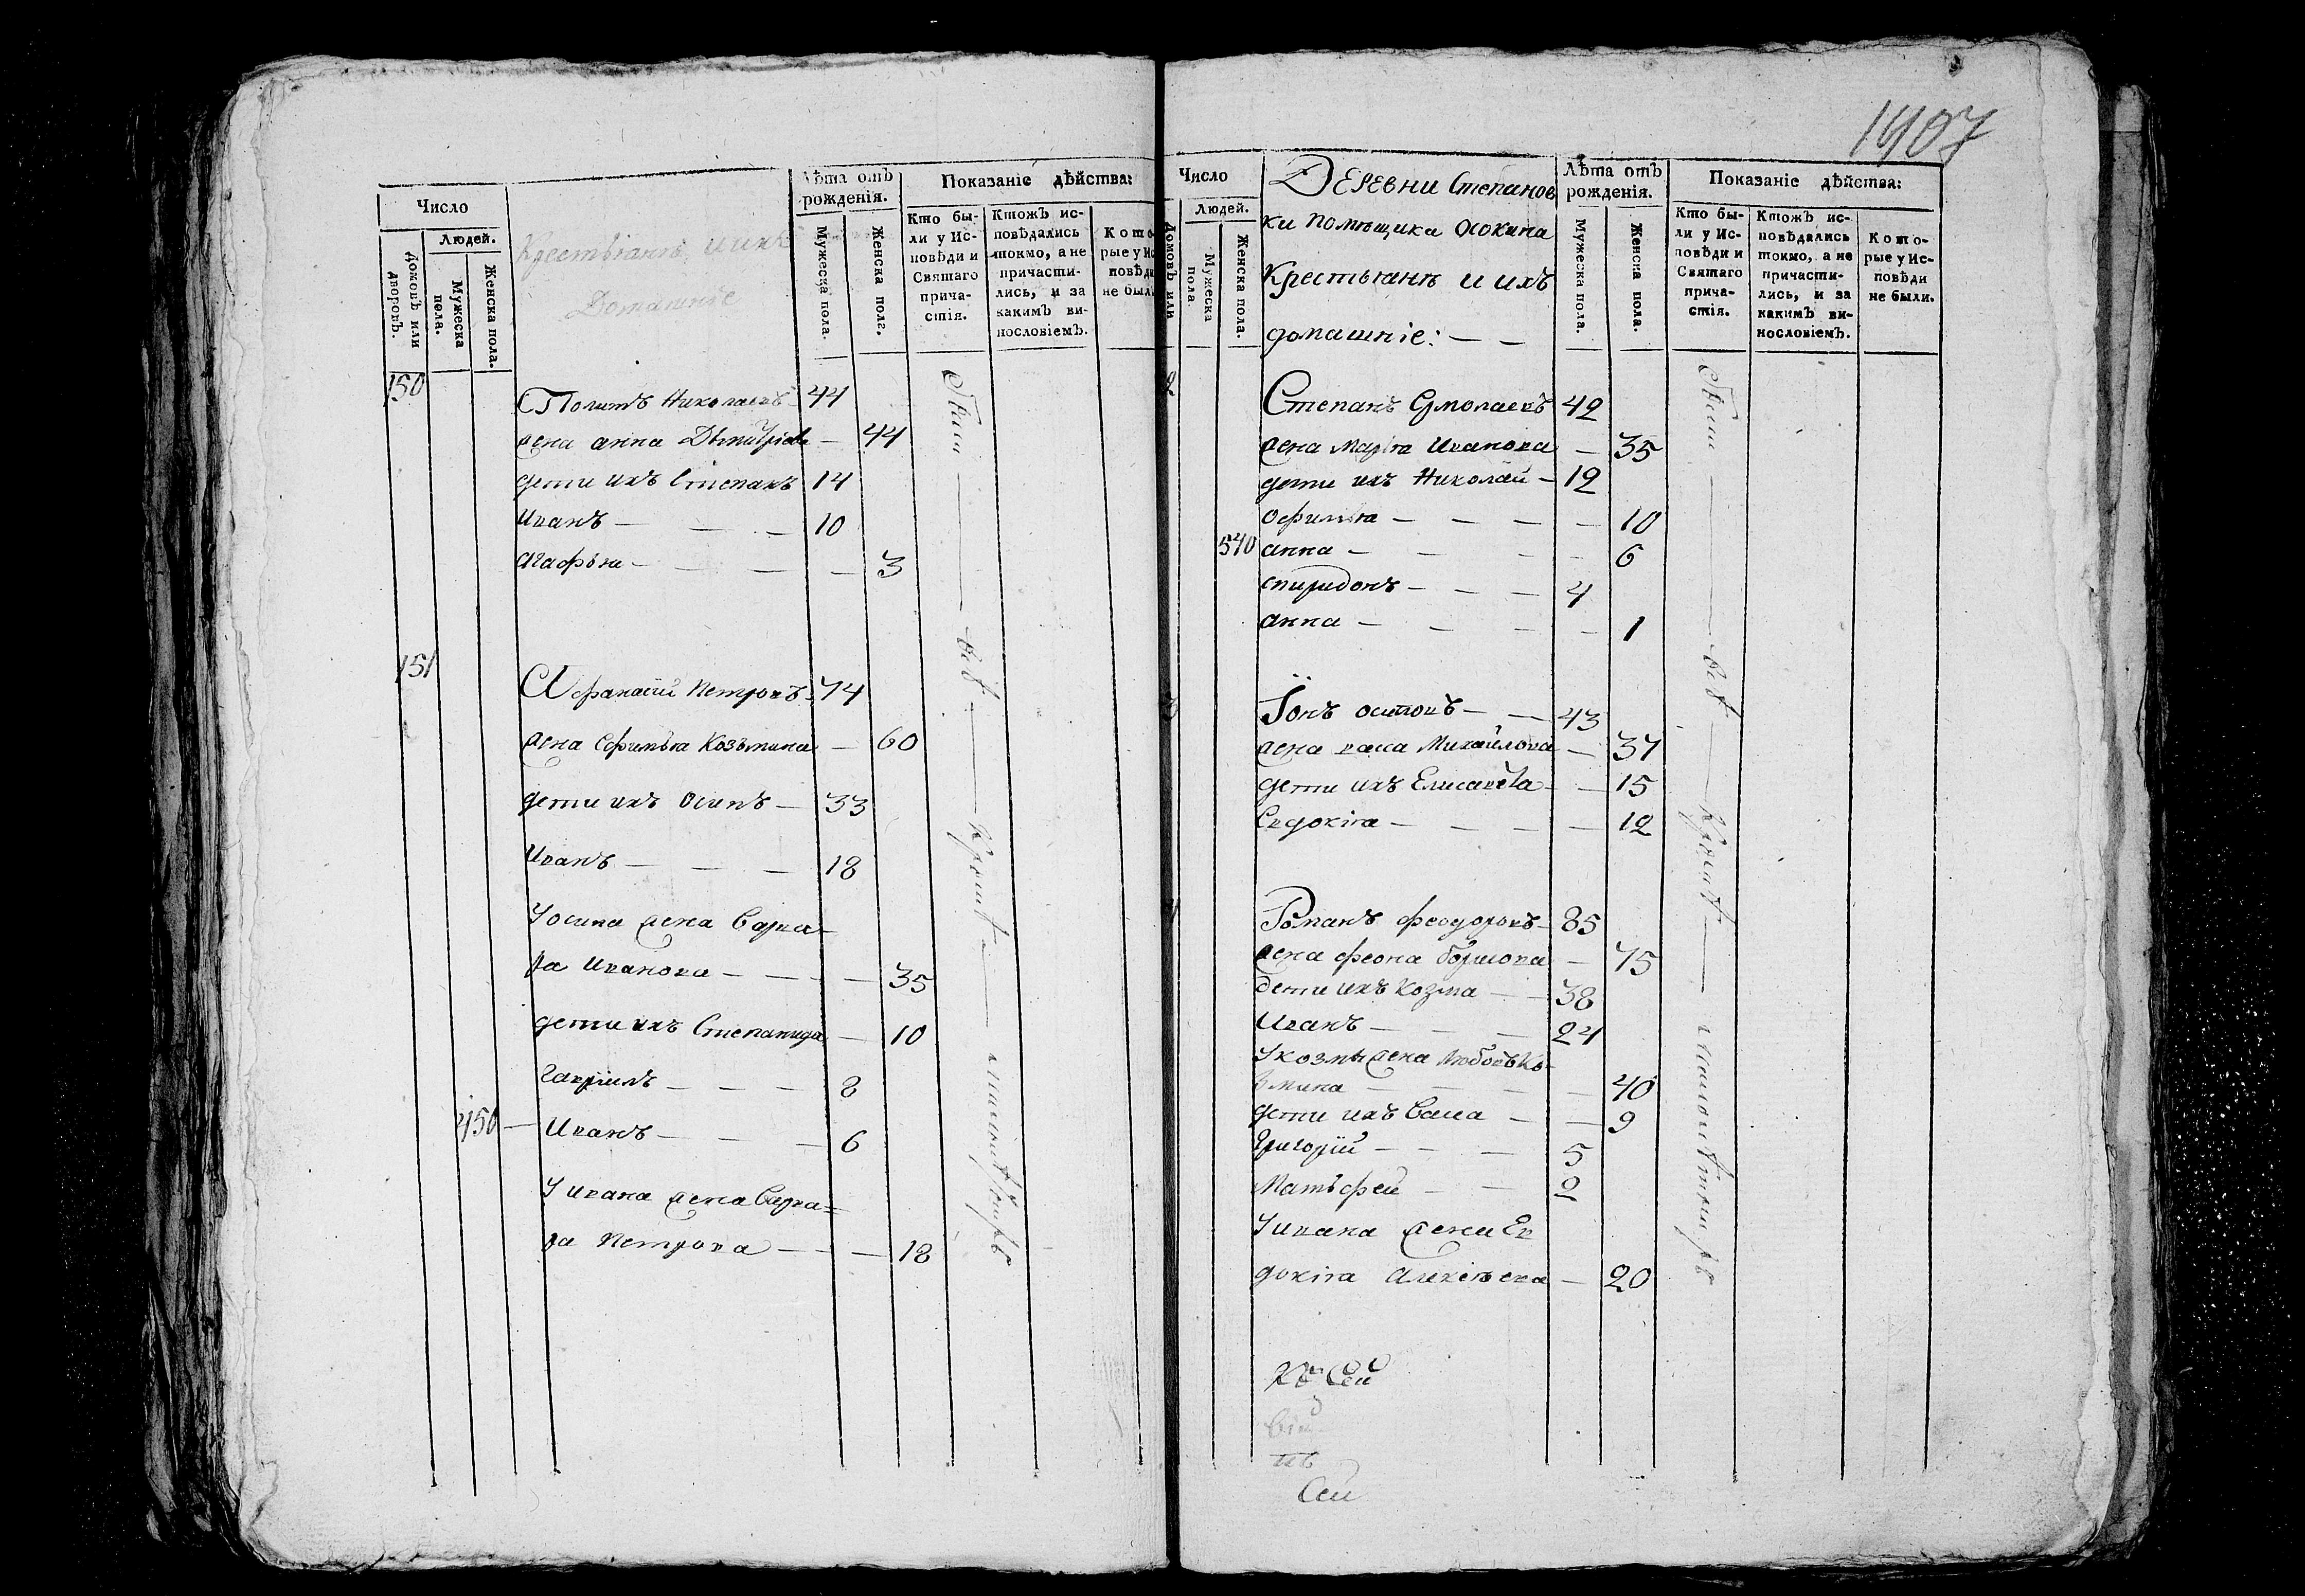 Число
Людей.
Домовъ или дворовъ.
Мужеска пола.
Женска пола.
Крестьянъ и ихъ
Домашніе
Лѣта отъ рожденія.
Мужеска пола.
Женска пола.
Показаніе дѣйства:
Кто бы-
ли у Ис-
повѣди и
Святаго
прича-
стія.
Ктожъ ис-
повѣдались
токмо, а не
причасти-
лись, и за
какимъ ви-
нословіемъ.
Кото-
рые у Ис
повѣди
не были
150
Николаевъ 44
жена анна Дьмитріева — 44
дети ихъ Степанъ 14
Иванъ — — — 10
агафья — — — — 3
151
Афанасій Петровъ 74
жена Ефимья Козьмина — 60
дети ихъ Осипъ — 33
Иванъ — — — 18
У осипа жена Варва-
ра Иванова — — — 35
дети ихъ Степанида — 10
Гавріилъ — — — 8
450 — Иванъ — — — 6
У ивана жена Варва=
ра Петрова — — — 18
1407
Число
Людей.
Домовъ или
Мужеска пола.
Женска пола.
Деревни Степанов
ки помѣщика Осокина
Крестьянъ и ихъ
домашніе: — —
Лѣта отъ рожденія.
Мужеска пола.
Женска пола.
Показаніе дѣйства:
Кто бы-
ли у Ис-
повѣди и
Святаго
прича-
стія.
Ктожъ ис-
повѣдались
токмо, а не
причасти-
лись, и за
какимъ ви-
нословіемъ.
Кото-
рые у Ис-
повѣди
не были.
2
Степанъ Ермолаевъ 42
жена Марья Иванова — 35
дети ихъ Николай — 12
офимья — — — — 10
540 анна — — — — 6
спиридонъ — — — 4
анна — — — — 1
3
Іонъ осиповъ — — 43
жена васса Михайлова — 37
дети ихъ Елисавета — — 15
Евдокія — — — — 12
4
Романъ феодоровъ — 85
жена феона борисова — 75
дети ихъ Козма — — 38
Иванъ — — — 24
У козмы жена Любовь Ко-
змина — — — — 40
дети ихъ Васса — — 9
Григорій — — — 5
Матьфей — — 2
У ивана жена Ев
докія Алексѣева — 20